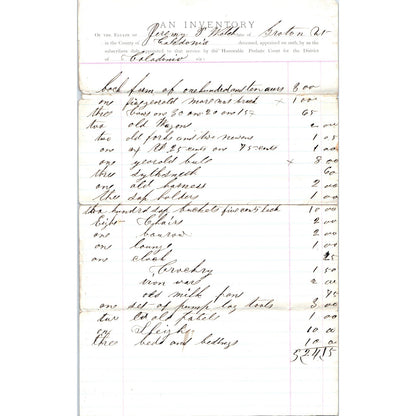 AN INVENTORY
OF THE ESTATE OF Jeremy P Welch of Groton Vt
in the County of Caledonia deceased, appraised on oath, by us, the
subscribers duly appointed to that service by the Honorable Probate Court for the District
of Caledonia
farm of one hundred ten acrs 800
one x 1 00
three cows one 30 one 20 one 15 65
two old Wagons 2 00
two old forks and two 1 05
one ax 25 cents one 75 cents 1 00
one yearold bull x 8 00
three 60
one old harness 2 00
three sap holders 1 00
two hundred sap buckets five cents each 10 00
Eight Chairs 2 00
one 2 00
one lounge 1 00
one clock 25
Crockry 1 50
iron ware 2 00
old milk pans 75
one set of pump log tools 3 00
two old tables 1 00
one Sleigh 10 00
three beds and beddings 10 00